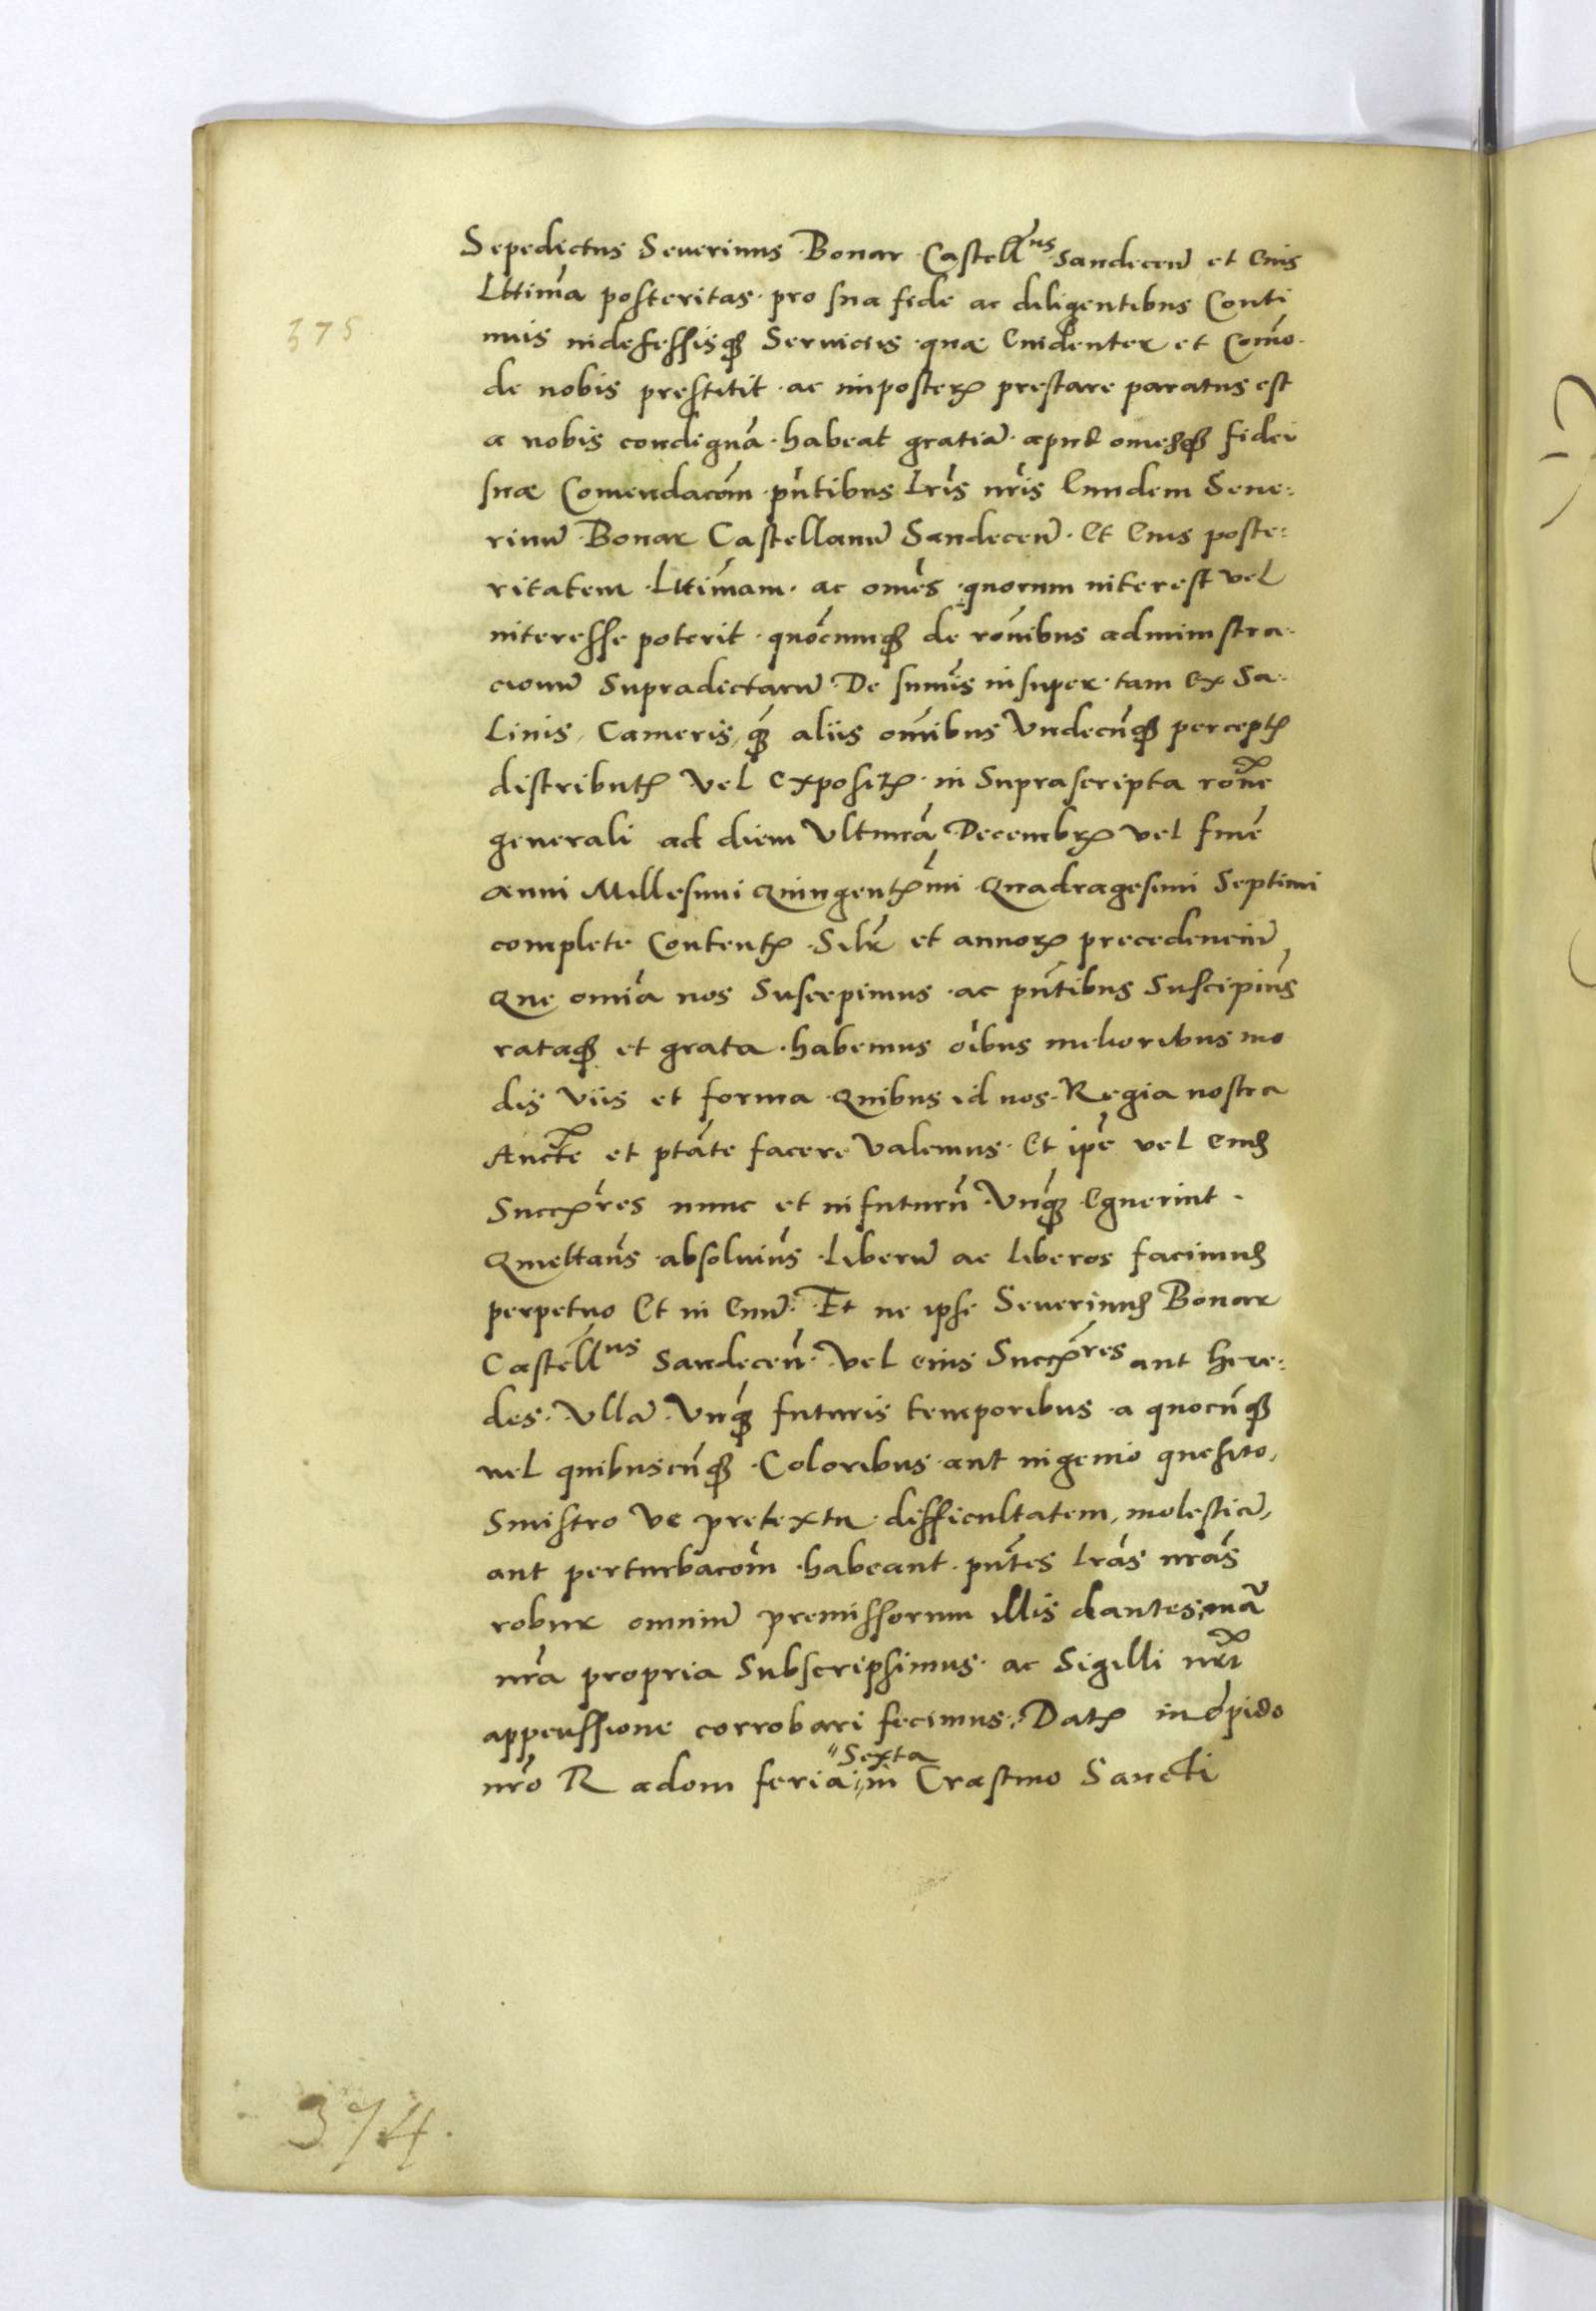 Sepedictus Seuerinus Bonar Castell^ns Sandeceñ et Eius
Lttima posteritas pro sua fide ac diligentibus Conti
375
nuis indefessisq3 Seruiciis quae Euidenter et Como
de nobis prestitit ac imposterꝝ prestare paratus est
a nobis condignā habeat gratiā apud omesq3 fidei
suae Comendacom pntibus Lris nris Eundem Seue:
rinū Bonar Castellanū Sandeceñ Et Eius poste:
ritatem Lttimam ac omes quorum interest vel
interesse poterit quocumq3 de ronibus administra
cionū Supradictarū De sumis insuper tam Ex Sa
Linis, Cameris, q3 aliis omnibus Vndecunq3 perceptꝭ
distributꝭ vel Expositꝭ in Suprascripta rone
generali ad diem Vltimā Decembrꝭ vel fine
anni Millesimi Quingentꝭimi Quadragesimi Septimi
complete Contentꝭ Silr et annorꝝ precedenciū
Que omia nos Suscepimus ac pntibus Suscipimꝰ
rataq3 et grata habemus oibus melioribus mo
dis viis et forma Quibus id nos Regia nostra
Aucte et ptate facere Valemus Et ipe vel eius
Succꝭres nunc et in futurū Vnq3 Eguerint
Quiettamꝰ absoluimꝰ Liberū ac Liberos facimus
perpetuo Et in Euū Et ne ipse Seuerinus Bonar
Castell^ns Sandeceñ Vel eius Succꝭres aut here:
des Vllā Vnq3 futuris temporibus a quocunq3
uel quibuscunq3 Coloribus aut ingenio quesito,
Sinistro ve pretextu difficultatem, molestiā,
aut perturbacom habeant pntes Lras nras
robur omniū premissorum illis dantes, manū
nra propria Subscripsimus ac Sigilli nri
appenssione corrobari fecimus: Datꝭ in opido
nro Radom feria Sexta in Crastino Sancti
374.